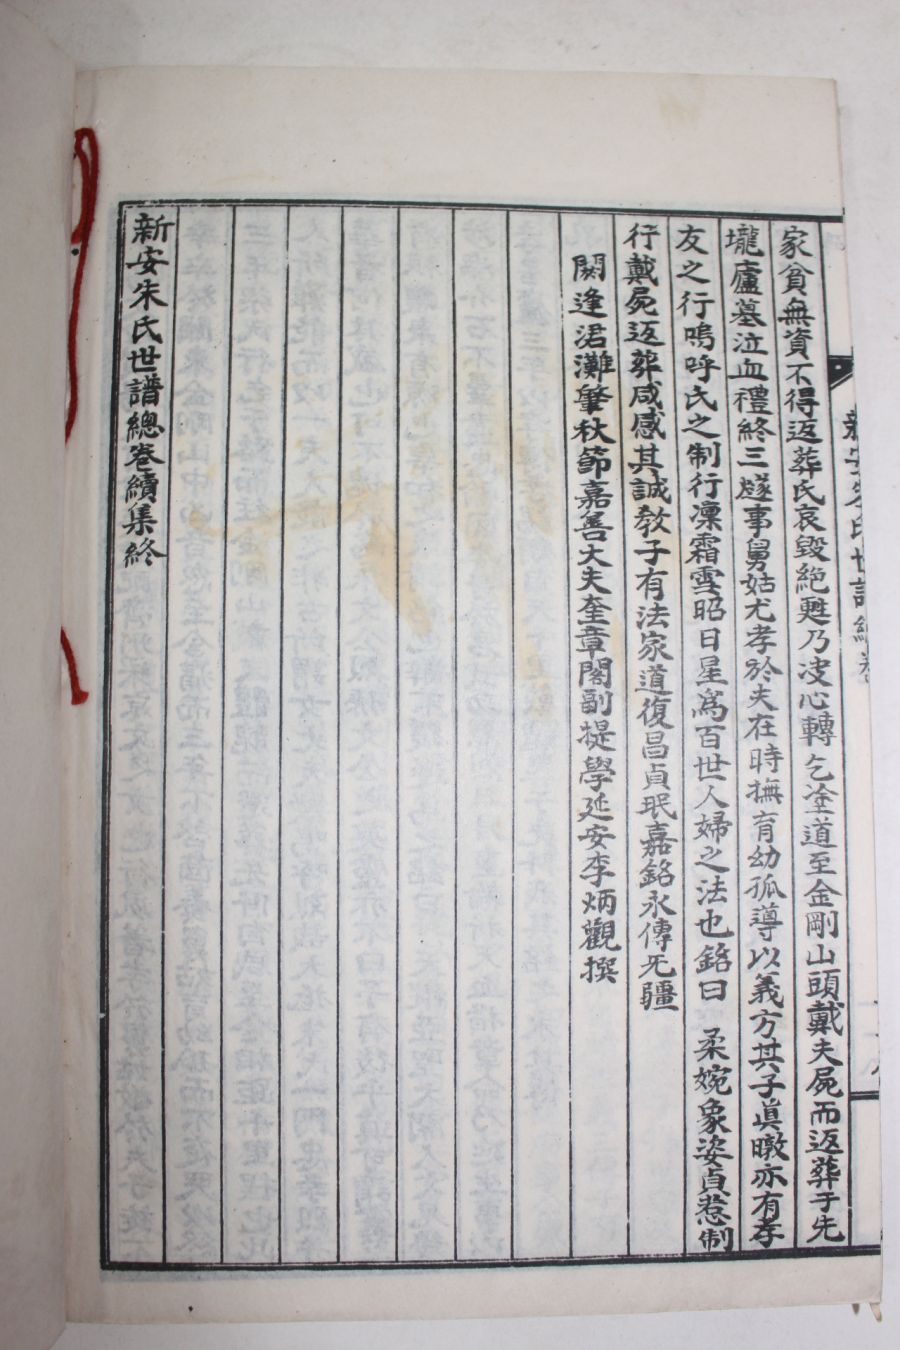 新安朱氏世譜總卷
家貧無資不得返葬氏哀毀絶甦乃決心轉乞塗道至金剛山頭戴夫屍而返葬于先
壠廬墓泣血禮終三燧事舅姑尤孝於夫在時撫育幼孤導以義方其子眞暾亦有孝
友之行嗚呼氏之制行凜霜雪昭日星爲百世人婦之法也銘曰 柔婉象姿貞惹制
行戴屍返葬咸感其誠敎子有法家道復昌貞珉嘉銘永傳旡疆
閼逢涒灘肇秋節嘉善大夫奎章閣副提學延安李炳觀撰
新安朱氏世譜總卷續集終